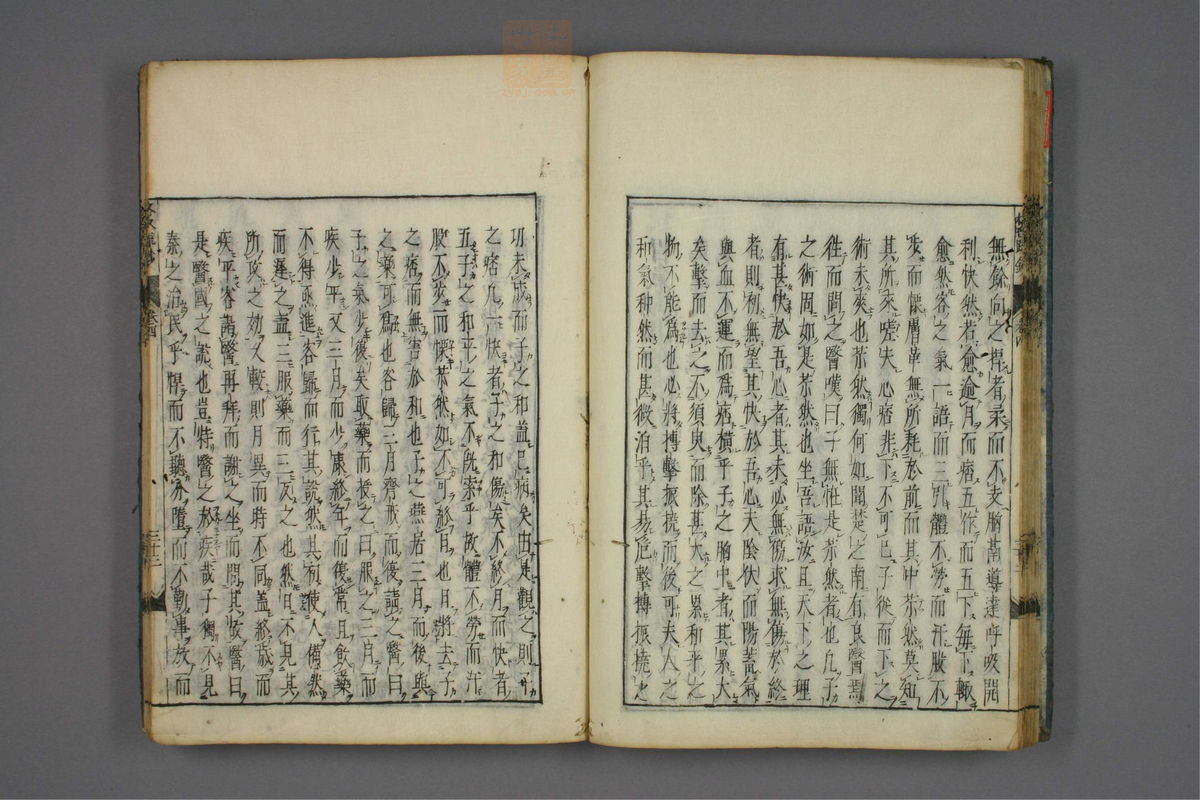 無餘向之捍者柔而不支膈菌導達呼吸開
利快然者愈逾月而痞五作而五下每下輒
愈然客之氣一語而三引體不勞而汗股不
步而慄膚革無所耗於前而其中苶然莫知
其所來嗟夫心痞非下不可已子從而下之
術未爽也苶然獨何如聞楚之南有良醫焉
往而問之醫嘆曰子無怪是苶然者也凡子
之術固如是苶然也坐吾語汝且天下之理
有甚快於吾心者其末必無傷求無傷於終
者則初無望其快於吾心夫陰伏而陽蓄氣
與血不運而爲痞橫乎子之胸中者其累大
矣擊而去之不須臾而除甚大之累和平之
物不能爲也必將搏擊振撓而後可夫人之
和氣冲然而甚微泊乎其易危擊搏振撓之
功未成而子之和蓋已病矣由是觀之則子
之痞凡一快者子之和傷矣不終月而快者
五子之和平之氣不既索乎故體不勞而汗
股不步而慄苶然如不可終日也且將去子
之痞而無害於和也子之燕居三月而後與
之藥可爲也客歸三月齋戒而復請之醫曰
子之氣少復矣取藥而授之曰服之三月而
疾少平又三月而少康終年而復常且飲藥
不得亟進客歸而行其說然其初使人懣然
而遲之蓋三服藥而三反之也然日不見其
所攻之効久較則月異而時不同蓋終歲而
疾平客謁醫再拜而謝之坐而問其故醫曰
是醫國之說也豈特醫之於疾哉子獨不見
秦之治民乎悍而不聽令墮而不勤事放而